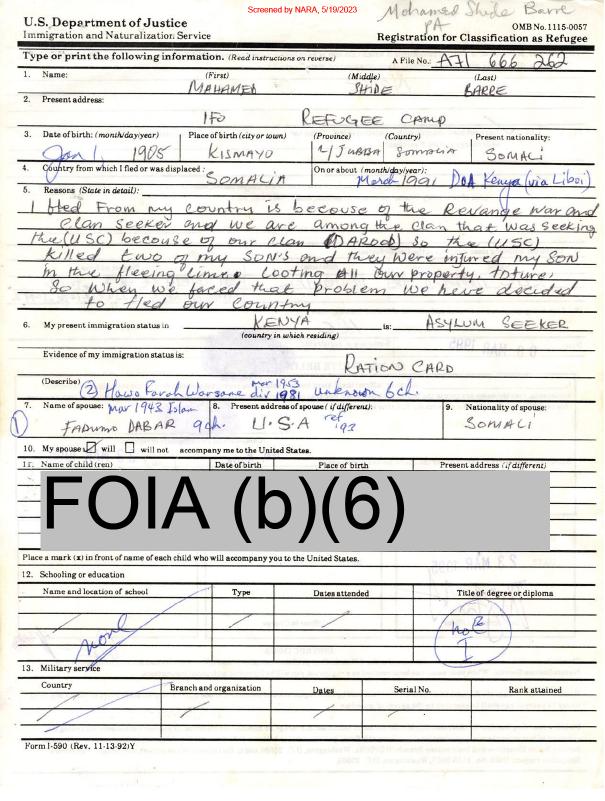 Screened by NARA, 5/19/2023
Mohamed Shide Barre
PA
U.S. Department of Justice
Immigration and Naturalization Service
OMB No. 1115-0057
Registration for Classification as Refugee
Type or print the following information. (Read instructions on reverse)
A File No.: A71 666 262
1. Name: (First) (Middle) (Last)
MAHAMED SHIDE BARRE
2. Present address:
IFO REFUGEE CAMP
3. Date of birth: (month/day/year) Place of birth (city or town) (Province) (Country) Present nationality:
Jan 1, 1905 KISMAYO L/JUBBA SOMALIA SOMALI
4. Country from which I fled or was displaced: On or about (month/day/year):
SOMALIA March 1991 DOA Kenya (via Liboi)
5. Reasons (State in detail):
I fled From my country is because of the Revange war and
clan seeker and we are among the clan that was seeking
the (USC) because of our clan (DAROD) so the (USC)
killed two of my SON'S and they were injured my SON
in the fleeing time. Looting All our property, toture,
So when we faced that problem we have decided
to fled our country
6. My present immigration status in KENYA is: ASYLUM SEEKER
(country in which residing)
Evidence of my immigration status is:
RATION CARD
(Describe) (2) Hawo Farah Warsame mar 1953 div 1981 unknown 6 ch.
7. Name of spouse: mar 1943 Islam 8. Present address of spouse (if different): 9. Nationality of spouse:
(1) FADUMO DABAR 9 ch. U.S.A ref '93 SOMALI
10. My spouse will will not accompany me to the United States.
11. Name of child (ren) Date of birth Place of birth Present address (if different)
FOIA (b)(6)
Place a mark (x) in front of name of each child who will accompany you to the United States.
12. Schooling or education
Name and location of school Type Dates attended Title of degree or diploma
none
no E
I
13. Military service
Country Branch and organization Dates Serial No. Rank attained
Form I-590 (Rev. 11-13-92)Y